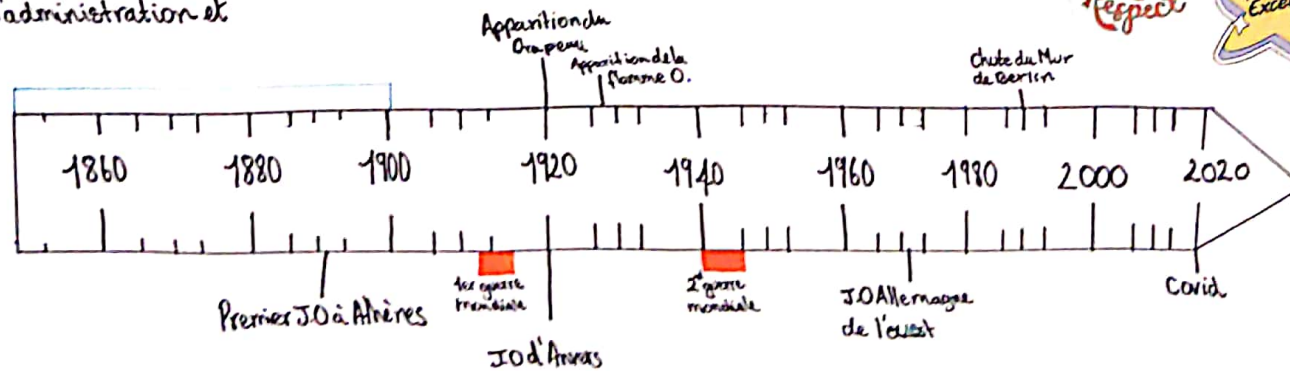 administration et
respect
Exce
Apparition du
Drapeau
Apparition de la
flamme O.
Chute du Mur
de Berlin
1860 1880 1900 1920 1940 1960 1980 2000 2020
Premier J.O à Athènes
1er guerre
mondiale
JO d'Anvers
2d guerre
mondiale
J.O Allemagne
de l'ouest
Covid